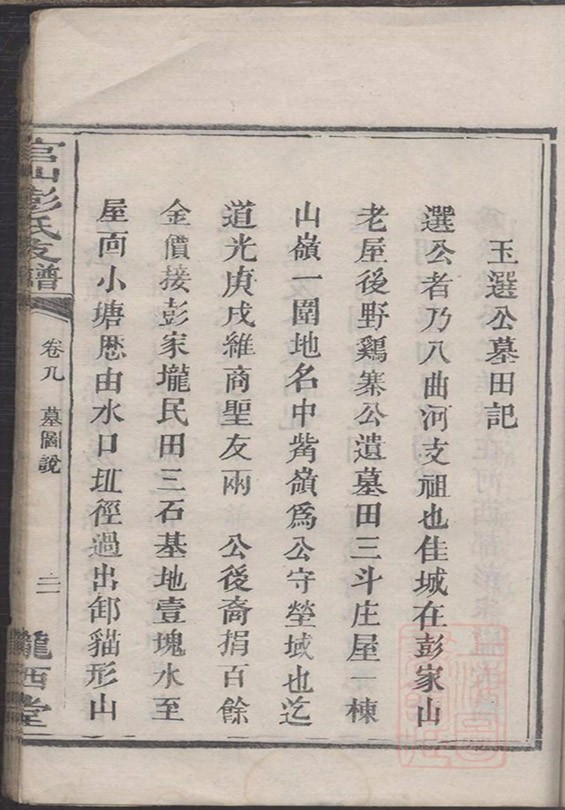 玉選公墓田記
選公者乃八曲河支祖也佳城在彭家山
老屋後野鷄寨公遺墓田三斗庄屋一棟
山嶺一圍地名中觜嶺爲公守塋域也迄
道光庚戌維商聖友兩 公後裔捐百餘
金價接彭家壠民田三石基地壹塊水至
屋向小塘厯由水口圵徑過出卸貓形山
官山彭氏支譜
卷九 墓圖說
二
隴西堂